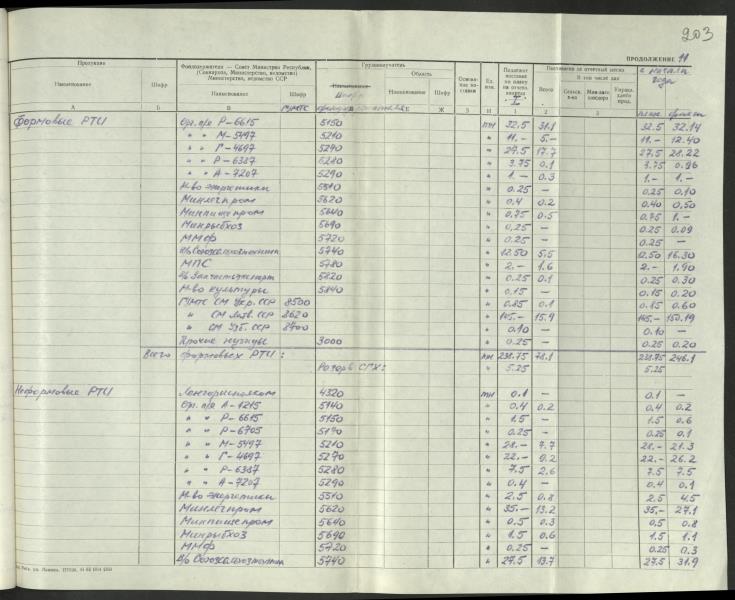 203
ПРОДОЛЖЕНИЕ 11
Продукция
Наименование
Шифр
Фондодержатели — Совет Министров Республики, (Совнархоз, Министерство, ведомство) Министерства, ведомства СССР
Наименование
Шифр
Грузополучатель
Область
Наименование
Шифр
Ед. изм.
Всего
В том числе
с начала года
А Б В Ж З И 1 2 3
план факт
Формовые РТИ Орг. п/я Р-6615 5150 тн 32.5 31.1 32.5 32.14
" " М-5497 5210 " 11.- 5.- 11.- 12.40
" " Г-4697 5270 " 27.5 17.7 27.5 28.22
" " Р-6387 5280 " 3.75 0.1 3.75 0.96
" " А-7207 5290 " 1.- 0.3 1.- 1.-
М-во энергетики 5510 " 0.25 — 0.25 0.10
Минлегпром 5620 " 0.4 0.2 0.40 0.50
Минпищепром 5640 " 0.75 0.5 0.75 1.-
Минрыбхоз 5690 " 0.25 — 0.25 0.09
ММФ 5720 " 0.25 — 0.25 —
В/о Союзсельхозтехника 5740 " 12.50 5.5 12.50 16.30
МПС 5780 " 2.- 1.6 2.- 1.90
В/о Запчастьэкспорт 5820 " 0.25 0.1 0.25 0.30
М-во культуры 5840 " 0.15 — 0.15 0.20
ГУМТС СМ Укр. ССР 8500 " 0.85 0.1 0.85 0.60
" СМ Латв. ССР 8620 " 145.- 15.9 145.- 150.19
" СМ Узб. ССР 8700 " 0.10 — 0.10 —
Прочие нужды 3000 " 0.25 — 0.25 0.20
Всего формовых РТИ: тн 238.75 78.1 238.75 246.1
Резерв СГХ: " 5.25 5.25
Неформовые РТИ Ленгорисполком 4320 тн 0.1 — 0.1 —
Орг. п/я А-1215 5140 " 0.4 0.2 0.4 0.2
" " Р-6615 5150 " 1.5 — 1.5 0.6
" " Р-6705 5170 " 0.25 — 0.25 0.1
" " М-5497 5210 " 28.- 7.7 28.- 21.3
" " Г-4697 5270 " 22.- 9.2 22.- 26.2
" " Р-6387 5280 " 7.5 2.6 7.5 7.5
" " А-7207 5290 " 0.4 — 0.4 0.1
М-во энергетики 5510 " 2.5 0.8 2.5 4.5
Минлегпром 5620 " 35.- 13.2 35.- 27.1
Минпищепром 5640 " 0.5 0.3 0.5 0.8
Минрыбхоз 5690 " 1.5 0.6 1.5 1.1
ММФ 5720 " 0.25 — 0.25 0.3
В/о Союзсельхозтехника 5740 " 27.5 13.7 27.5 31.9